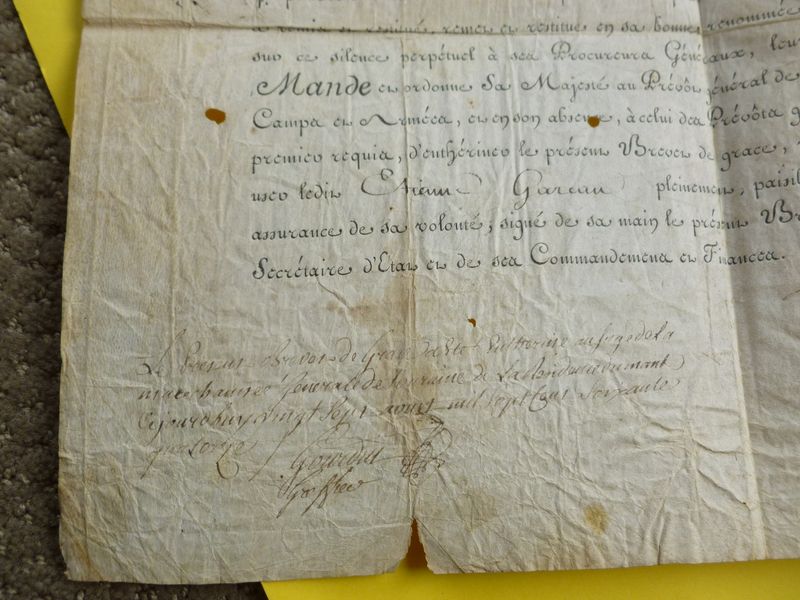 a remis et restitué, remet et restitue en sa bonne renommée
sur ce silence perpétuel à ses Procureurs Généraux, leu
Mande et ordonne Sa Majesté au Prévôt général de
Camps et Armées, et en son absence, à celui des Prévôts g
premier requis, d'enthériner le présent Brevet de grace,
user ledit Etienne Gareau pleinement, paisi
assurance de sa volonté, signé de sa main le présent Br
Secrétaire d'Etat et de ses Commandemens et Finances.
Le présent Brevet de Grace a été Entheriné au siege de La
marechaussée Generale de Lorraine de
Cejourdhuy vingt Sept aoust mil Sept Cens Soixante
quatorze
Greffier